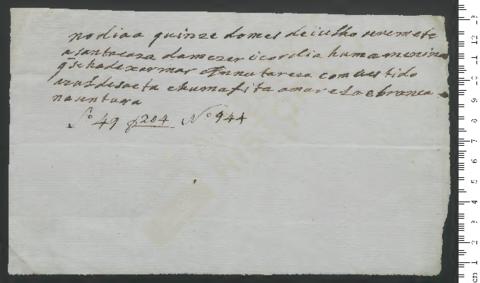 no dia a quinze do mes de iulho se remete
a santa caza da mezericordia huma menina
q se ha de xarmar Anna tareza com bestido
azul de saeta e huma fita amarela e branca
na sintura
fo 49 f 204 No 944